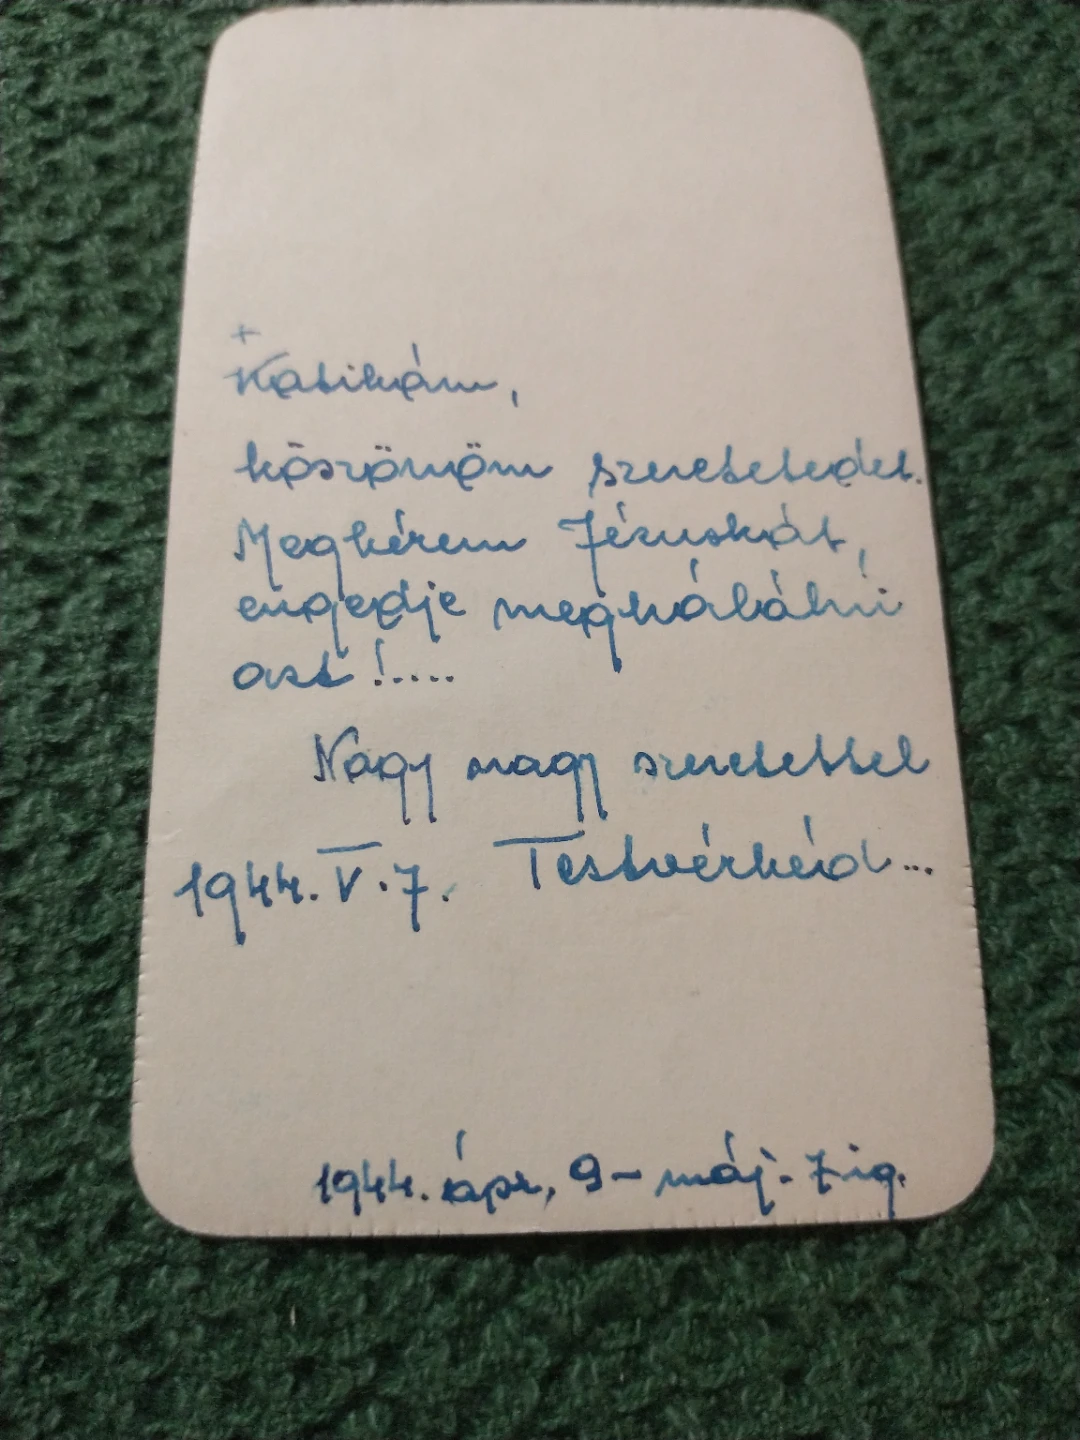 +
Katikám,
köszönöm szeretetedet.
Megkérem Jézuskát,
engedje meghálálni
azt!....
Nagy nagy szeretettel
1944. V. 7. Testvérkéd...
1944. ápr. 9 - máj. 7-ig.